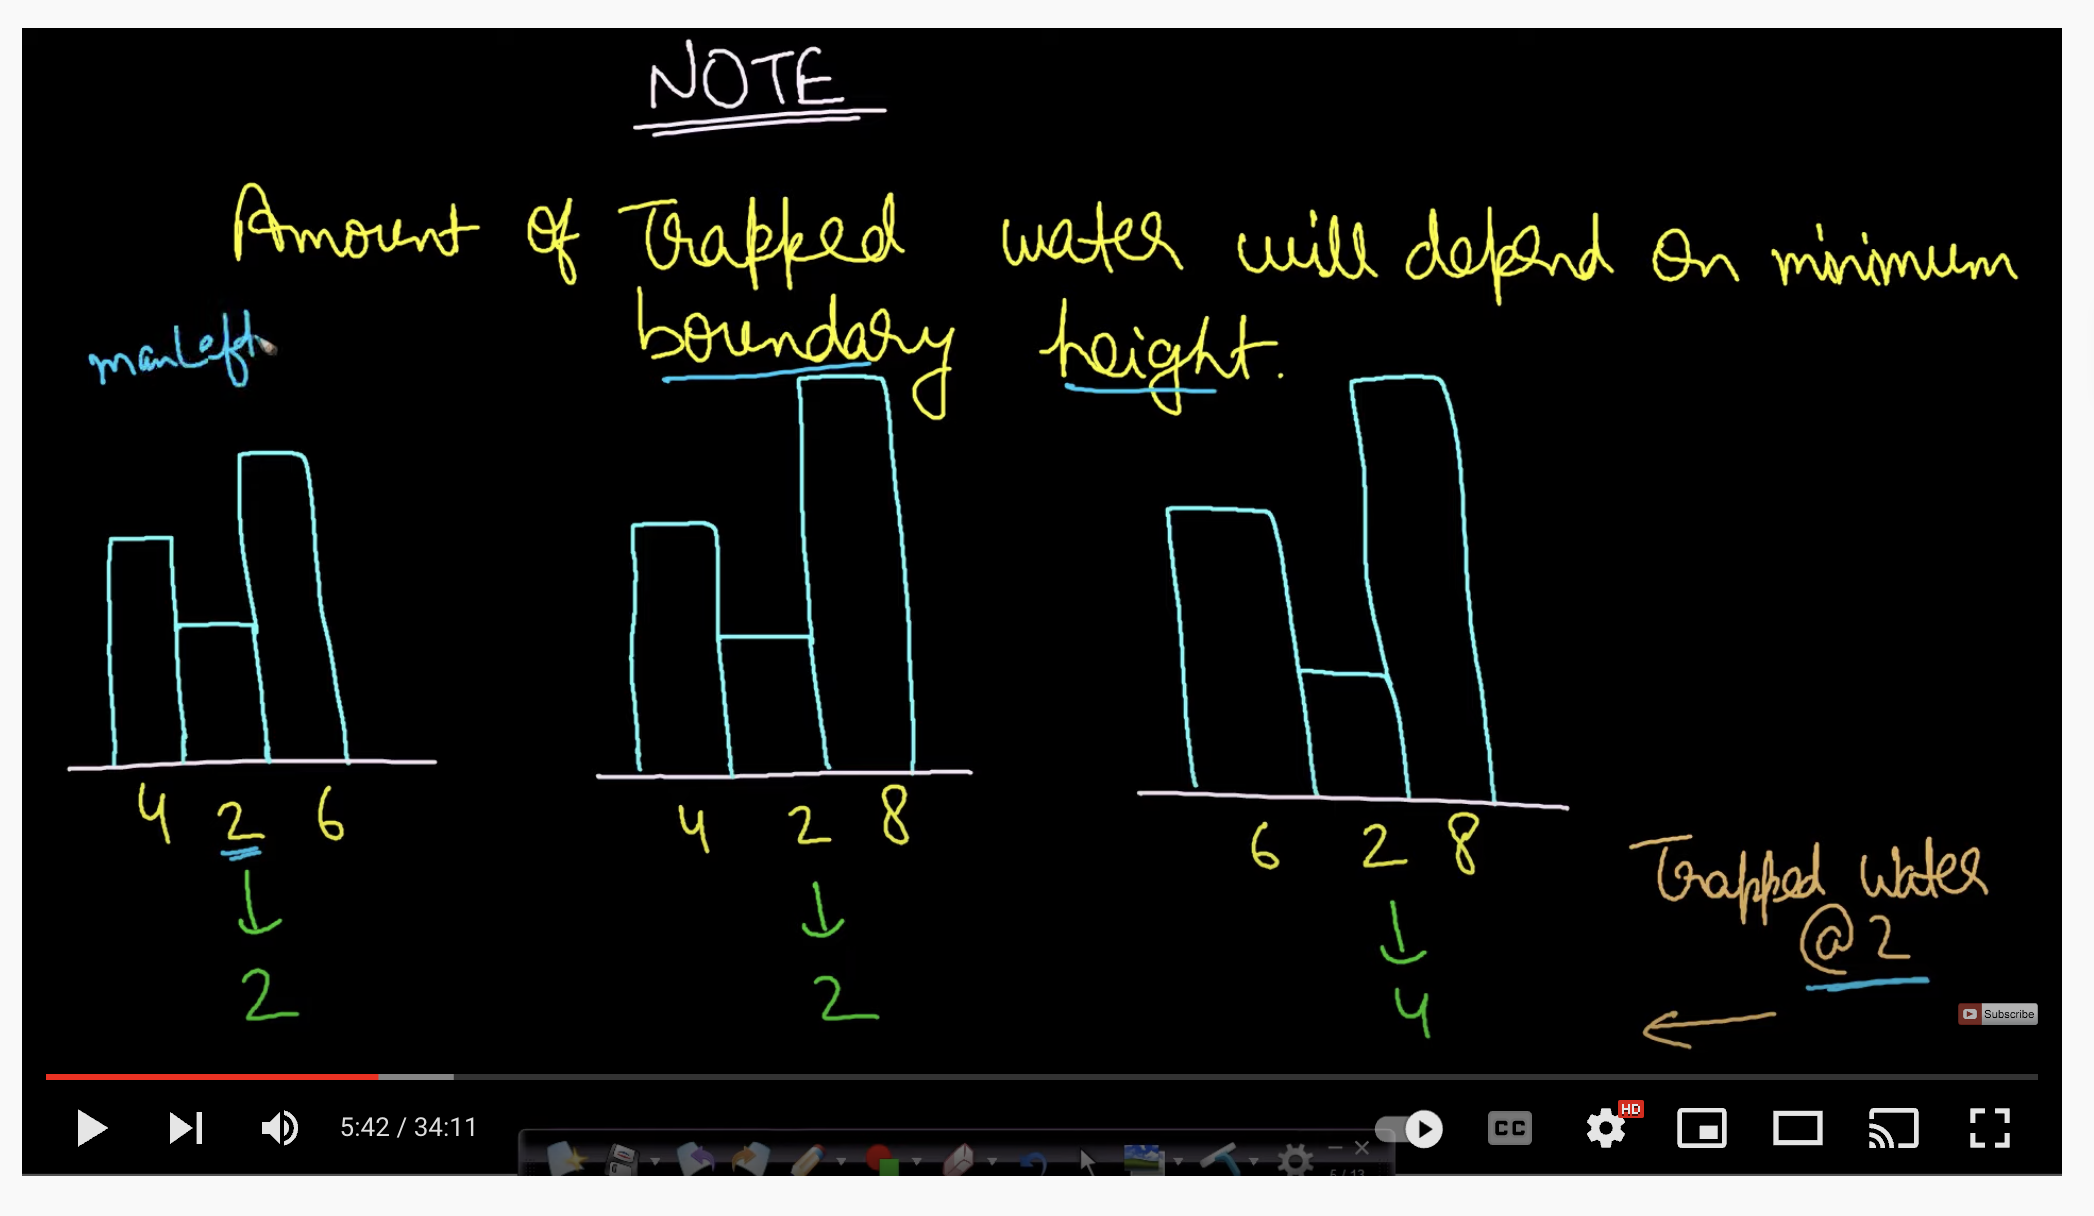 NOTE
Amount of Trapped water will depend on minimum
boundary height.
maxLeft
4 2 6
4 2 8
6 2 8
2
2
4
Trapped Water
@2
Subscribe
5:42 / 34:11
CC
HD
6 / 13